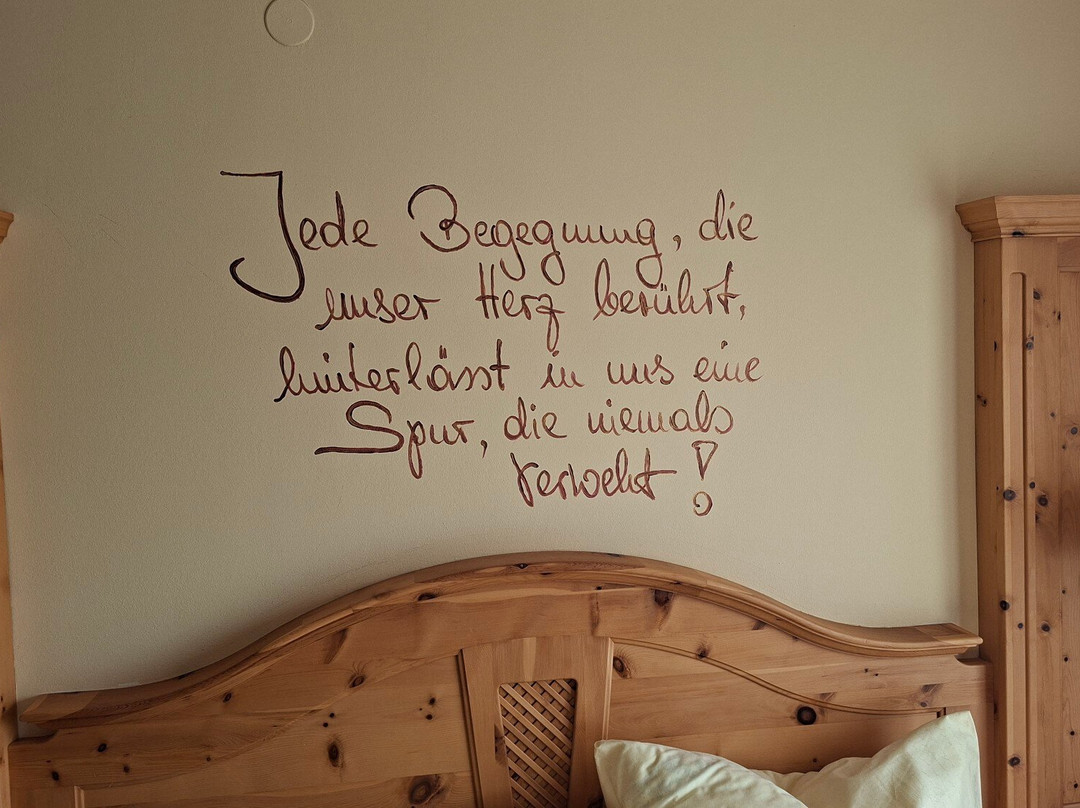 Jede Begegnung, die
unser Herz berührt,
hinterlässt in uns eine
Spur, die niemals
verweht!